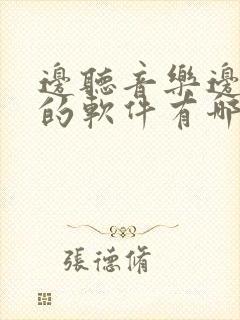 邊聽音樂邊
的軟件有哪
張德脩